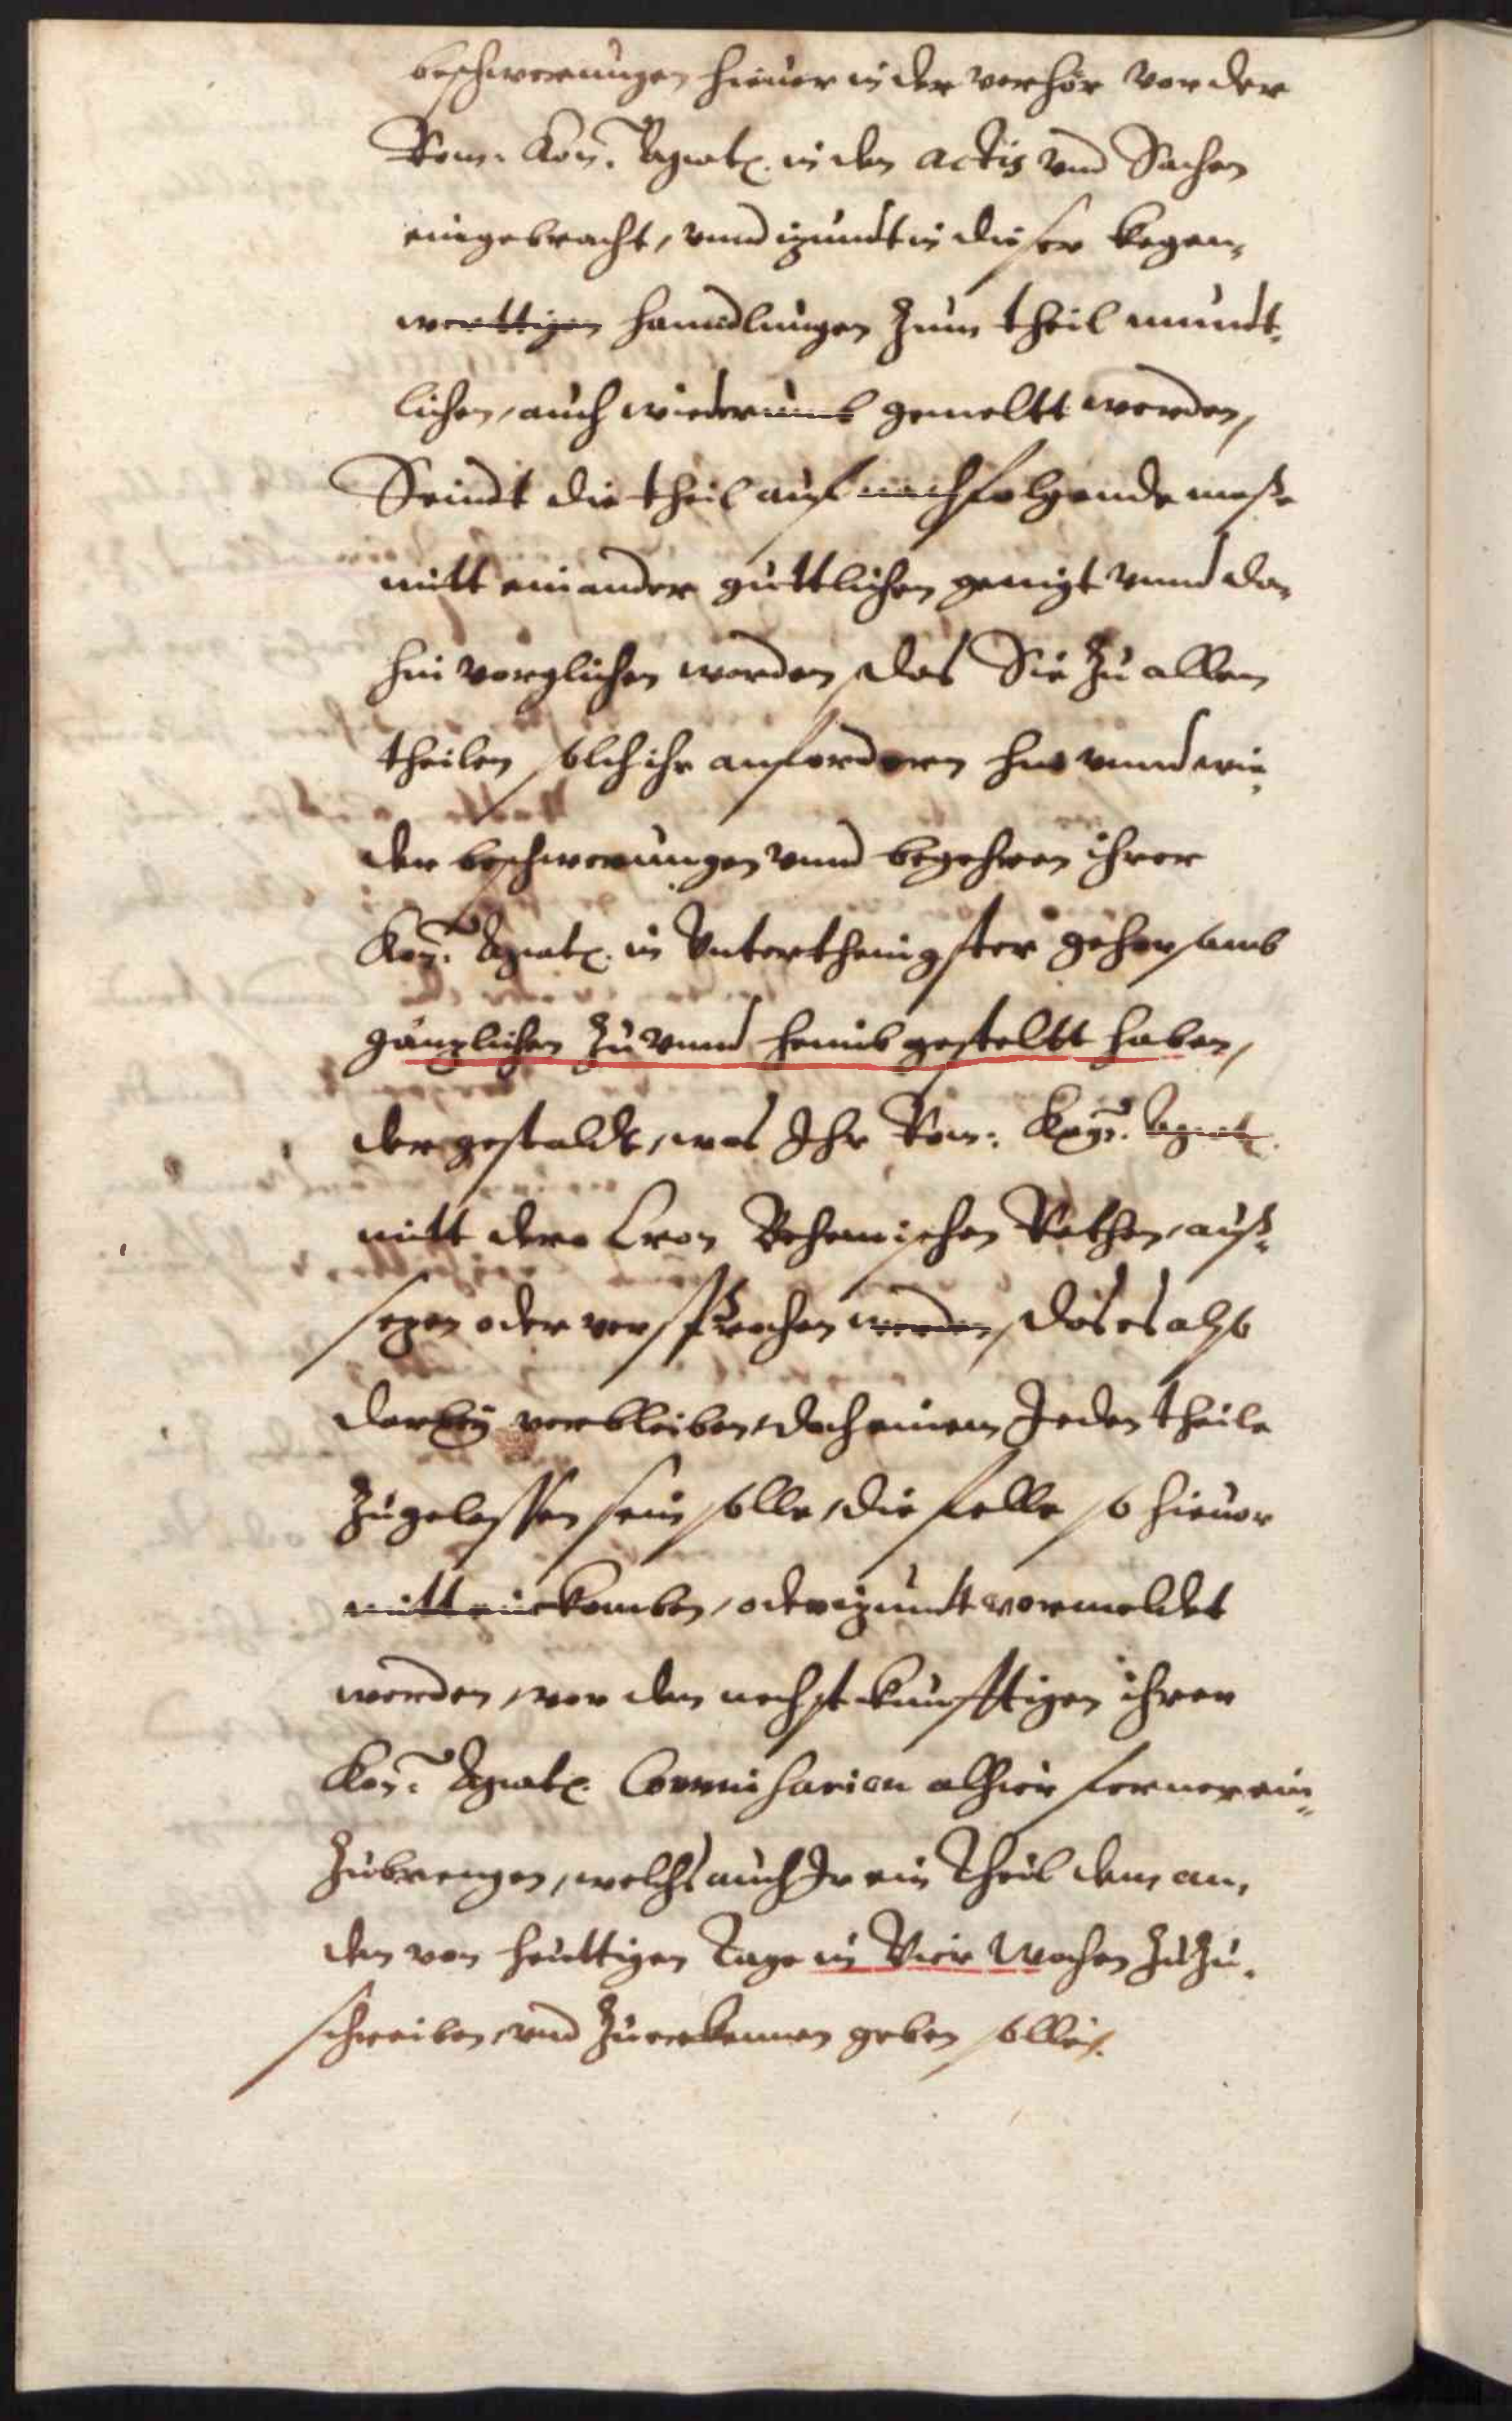 beschwerungen hieuor in der verhör vor der
Rom: Kön: Maytt. in den actis vnd Sachen
eingebracht, vnnd izundt in dieser kegen„
werttigen hanndlungen zum theil mundt„
lichen, auch wiederumb gemeltt worden,
Seindt die theil auf nachfolgende maße
mitt einander güttlichen geeinigt vnnd da„
hin vorglichen worden, das Sie zu allen
theilen solch ihr anfordern hin vnnd wie„
der beschwerungen vnnd begehren ihrer
Kön: Maytt. in Vnterthenigster gehorsamb
gänzlichen zu vnnd heimb gestelltt haben,
der gestaldt, was Ihr Rom: Kay: Maytt.
mitt dero Cron Behemischen Rethen, auß„
sezen oder versprochen werden, das es also
darbey verbleiben, doch einem Jeden theile
zugelassen sein solle, die felle so hieuor
mitt einkomben, oder izundt vermeldet
worden, vor den nechst künfftigen ihrer
Kön: Maytt. Commissarien alhier ferner ein„
zubrengen, welchs auch Je ein Theil dem an„
den von heuttigen Tage in Vier Wochen zuzu„
schreiben, vnd zuerkennen geben solle.